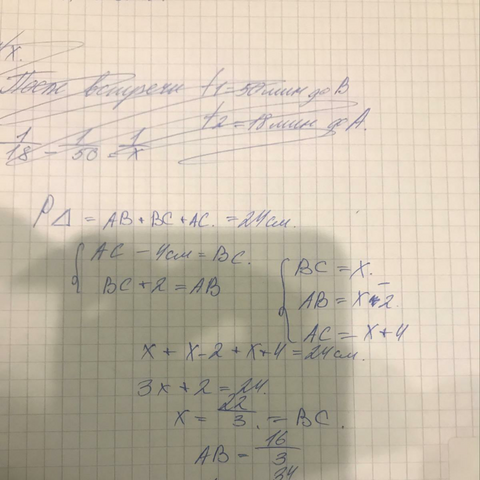 /x.
После встречи t1=50мин до B
t2=18мин до A.
1/18 - 1/50 = 1/x
P△ = AB+BC+AC. =24см.
{ AC - 4см = BC.
BC+2 = AB
{ BC = x.
AB = x-2.
AC = x+4
x + x-2 + x+4 = 24см.
3x+2 = 24.
x = 22/3. = BC.
AB = 16/3
34